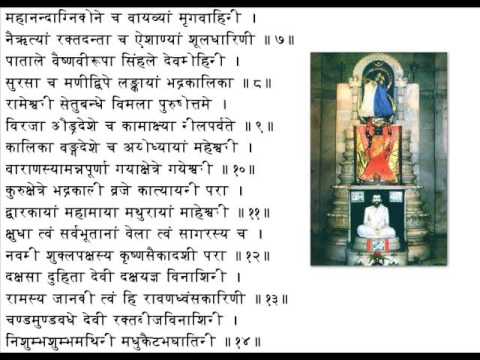 महानन्दाग्निकोने च वायव्यां मृगवाहिनी ।
नैऋत्यां रक्तदन्ता च ऐशाण्यां शूलधारिणी ॥ ७॥
पाताले वैष्णवीरूपा सिंहले देवमोहिनी ।
सुरसा च मणीद्विपे लङ्कायां भद्रकालिका ॥ ८॥
रामेश्वरी सेतुबन्धे विमला पुरुषोत्तमे ।
विरजा औड्रदेशे च कामाक्ष्या नीलपर्वते ॥ ९॥
कालिका वङ्गदेशे च अयोध्यायां महेश्वरी ।
वाराणस्यामन्नपूर्णा गयाक्षेत्रे गयेश्वरी ॥ १०॥
कुरुक्षेत्रे भद्रकाली व्रजे कात्यायनी परा ।
द्वारकायां महामाया मथुरायां माहेश्वरी ॥ ११॥
क्षुधा त्वं सर्वभूतानां वेला त्वं सागरस्य च ।
नवमी शुक्लपक्षस्य कृष्णसैकादशी परा ॥ १२॥
दक्षसा दुहिता देवी दक्षयज्ञ विनाशिनी ।
रामस्य जानकी त्वं हि रावणध्वंसकारिणी ॥ १३॥
चण्डमुण्डवधे देवी रक्तबीजविनाशिनी ।
निशुम्भशुम्भमथिनी मधुकैटभघातिनी ॥ १४॥